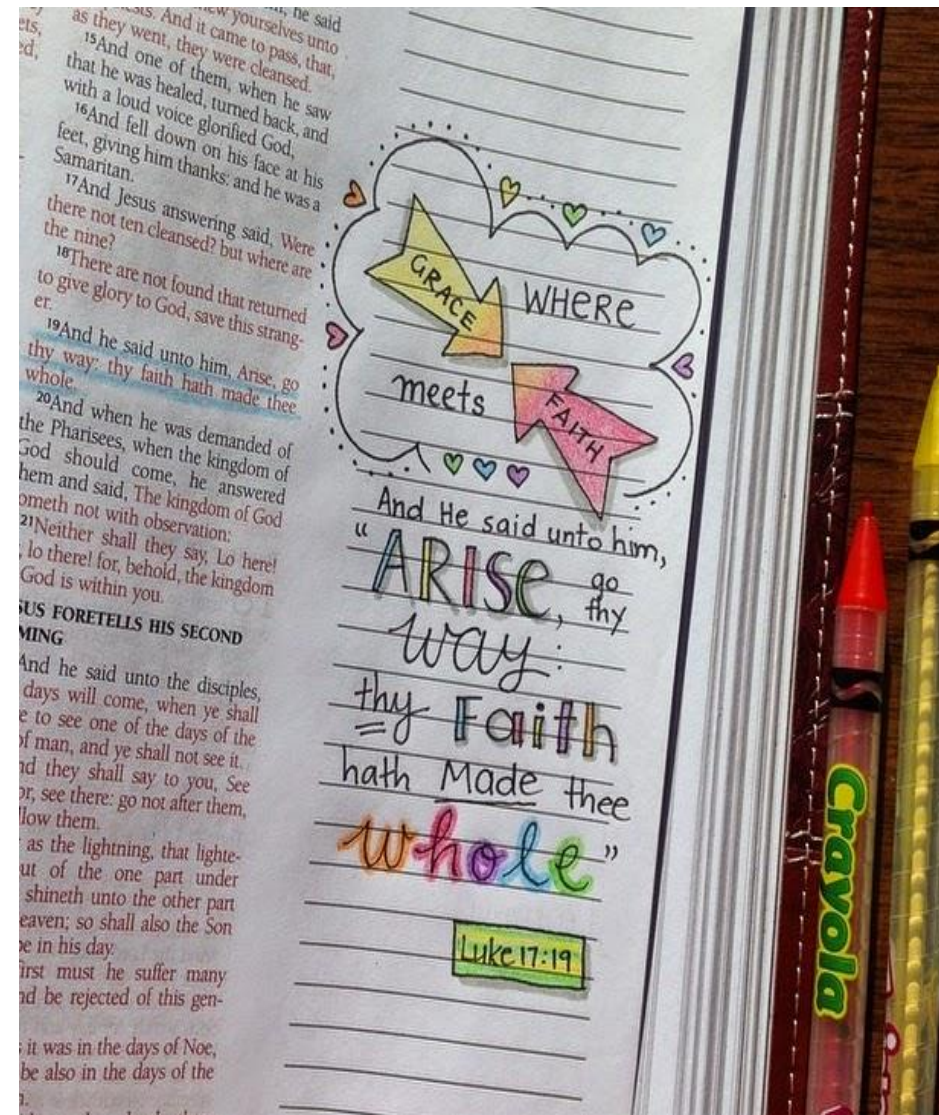 he said
yourselves unto
And it came to pass, that,
as they went, they were cleansed.
15And one of them, when he saw
that he was healed, turned back, and
with a loud voice glorified God,
16And fell down on his face at his
feet, giving him thanks: and he was a
Samaritan.
17And Jesus answering said, Were
there not ten cleansed? but where are
the nine?
18There are not found that returned
to give glory to God, save this strang-
er.
19And he said unto him, Arise, go
thy way: thy faith hath made thee
whole.
20And when he was demanded of
the Pharisees, when the kingdom of
God should come, he answered
them and said, The kingdom of God
cometh not with observation:
21Neither shall they say, Lo here!
lo there! for, behold, the kingdom
God is within you.
SUS FORETELLS HIS SECOND
MING
And he said unto the disciples,
days will come, when ye shall
to see one of the days of the
of man, and ye shall not see it.
nd they shall say to you, See
or, see there: go not after them,
llow them.
as the lightning, that lighte-
out of the one part under
shineth unto the other part
eaven; so shall also the Son
be in his day.
first must he suffer many
nd be rejected of this gen-
it was in the days of Noe,
be also in the days of the
WHERE
GRACE
meets
FAITH
And He said unto him,
“ARISE, go
thy
way:
thy Faith
hath Made thee
whole”
Luke 17:19
Crayola